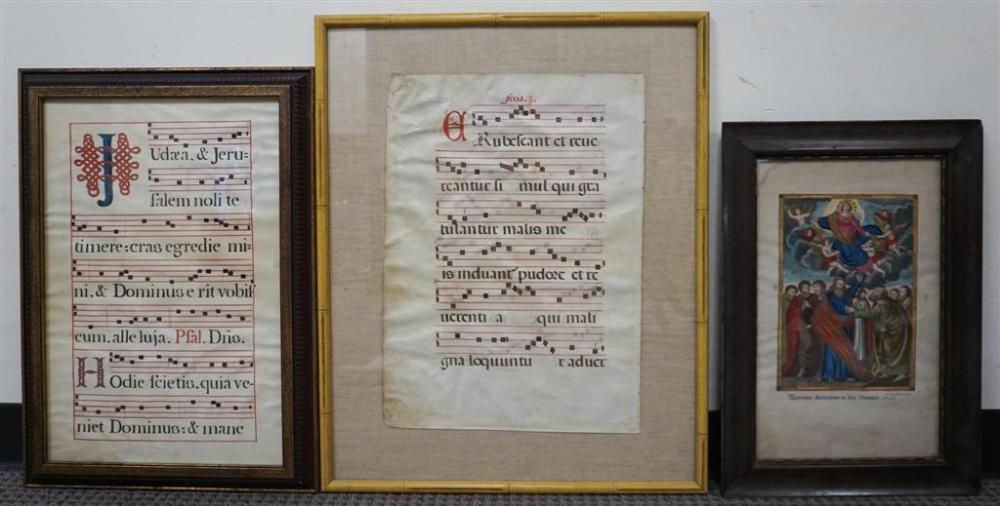 Udæa. & Jeru=
salem noli te
timere: cras egredie mi=
ni. & Dominus e rit vobis
cum. alle luja. Psal. Dño.
Hodie scietis. quia ve-
niet Dominus: & mane
feria. 3.
ERubescant et reve
reantur si mul qui gra
tulantur malis me
is induant pudore et re
verenti a qui mali
gna loquuntu r aduer